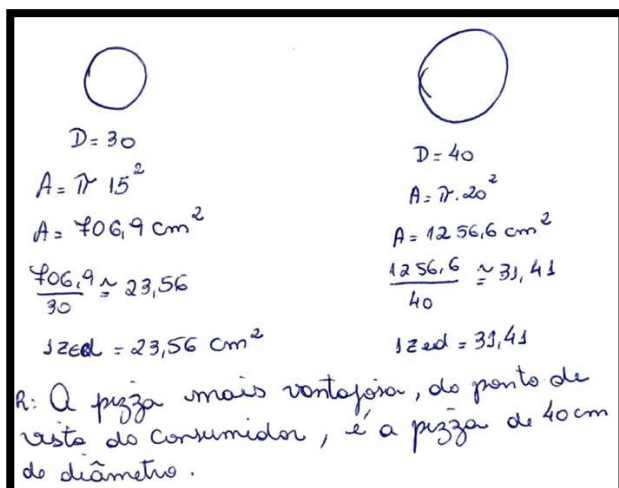 D = 30
A = π 15²
A = 706,9 cm²
706,9/30 ≃ 23,56
1zed = 23,56 cm²
D = 40
A = π.20²
A = 1256,6 cm²
1256,6/40 ≃ 31,41
1zed = 31,41
R: A pizza mais vantajosa, do ponto de
vista do consumidor, é a pizza de 40cm
de diâmetro.